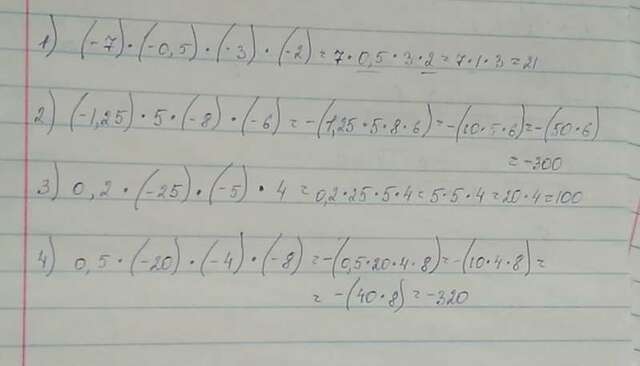 1) (-7)·(-0,5)·(-3)·(-2)=7·0,5·3·2=7·1·3=21
2) (-1,25)·5·(-8)·(-6)=-(1,25·5·8·6)=-(10·5·6)=-(50·6)
=-300
3) 0,2·(-25)·(-5)·4=0,2·25·5·4=5·5·4=20·4=100
4) 0,5·(-20)·(-4)·(-8)=-(0,5·20·4·8)=-(10·4·8)=
=-(40·8)=-320